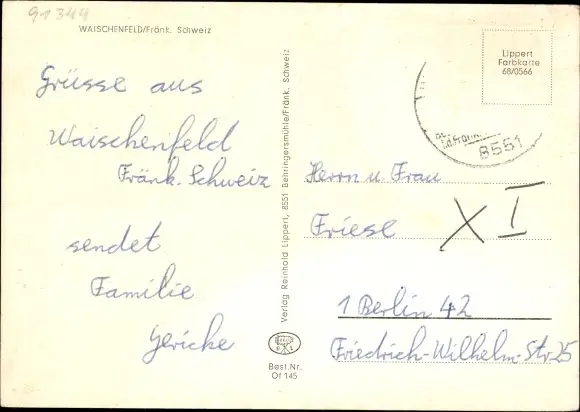 91344
WAISCHENFELD/Fränk. Schweiz
Grüsse aus
Waischenfeld
Fränk. Schweiz
sendet
Familie
Gericke
Verlag Reinhold Lippert, 8551 Behringersmühle/Fränk. Schweiz
Best.Nr.
Of 145
Lippert
Farbkarte
68/0566
8551
Herrn u. Frau
Friese
XI
1 Berlin 42
Friedrich-Wilhelm-Str. 25